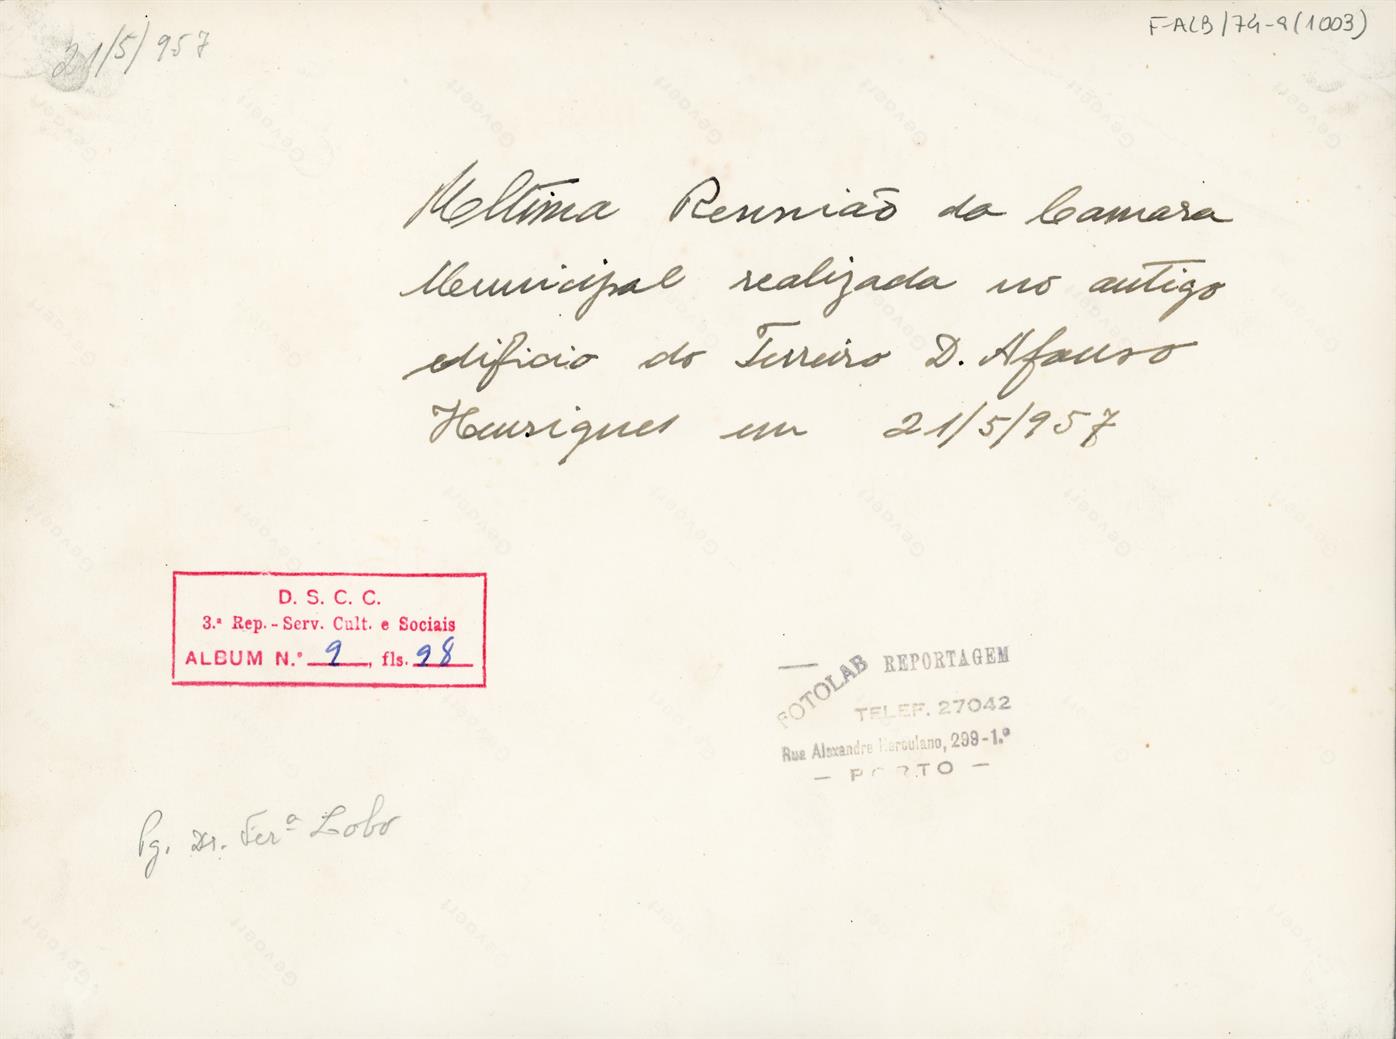 21/5/957
F-ALB/74-9(1003)
Ultima Reunião da Camara
Municipal realizada no antigo
edificio do Terreiro D. Afonso
Henriques em 21/5/957
D. S. C. C.
3.ª Rep. - Serv. Cult. e Sociais
ALBUM N.º 9, fls. 98
FOTOLAB REPORTAGEM
TELEF. 27042
Rua Alexandre Herculano, 299-1.º
— PORTO —
Pg. Dr. Ferª Lobo
Gevaert